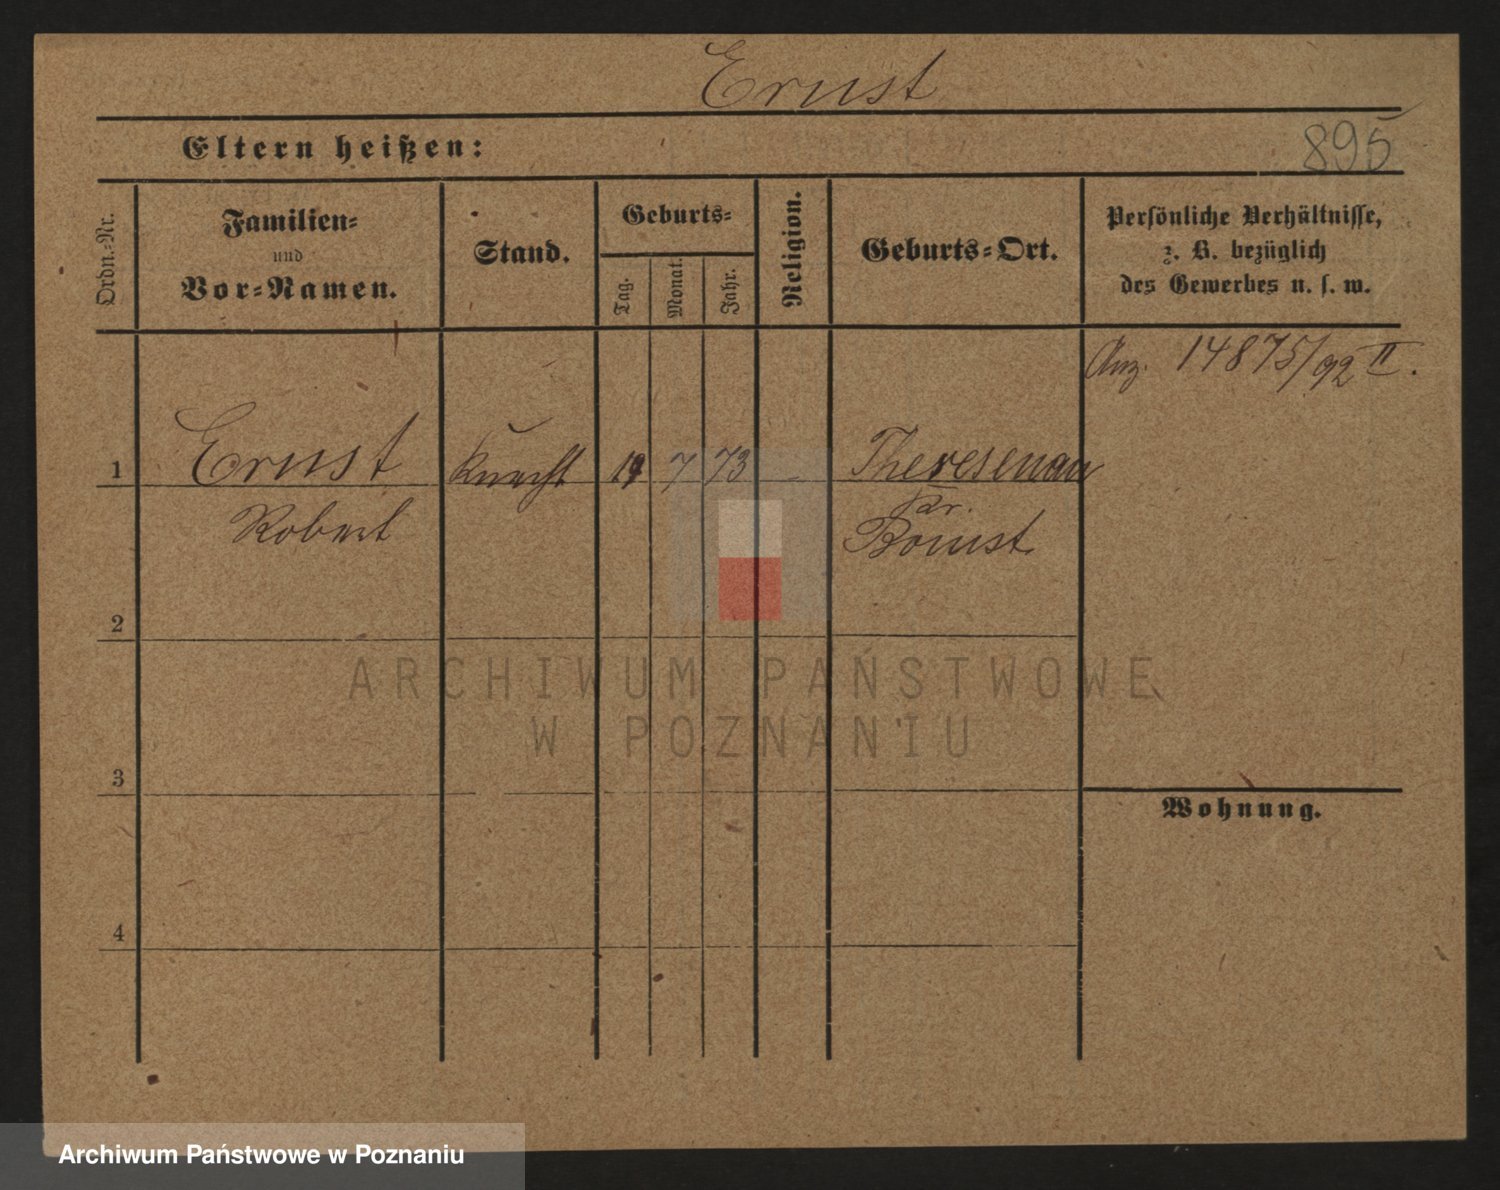 Ernst
Eltern heißen:
895
Ordn.=Nr.
Familien=
und
Vor=Namen.
Stand.
Geburts=
Tag.
Monat.
Jahr.
Religion.
Geburts=Ort.
Persönliche Verhältnisse,
z. B. bezüglich
des Gewerbes u. s. w.
Anz. 14875/92 II.
1
Ernst
Knecht
7
73
Theresenau
Robert
Kr.
Bomst
2
ARCHIWUM PAŃSTWOWE
W POZNANIU
3
Wohnung.
4
Archiwum Państwowe w Poznaniu